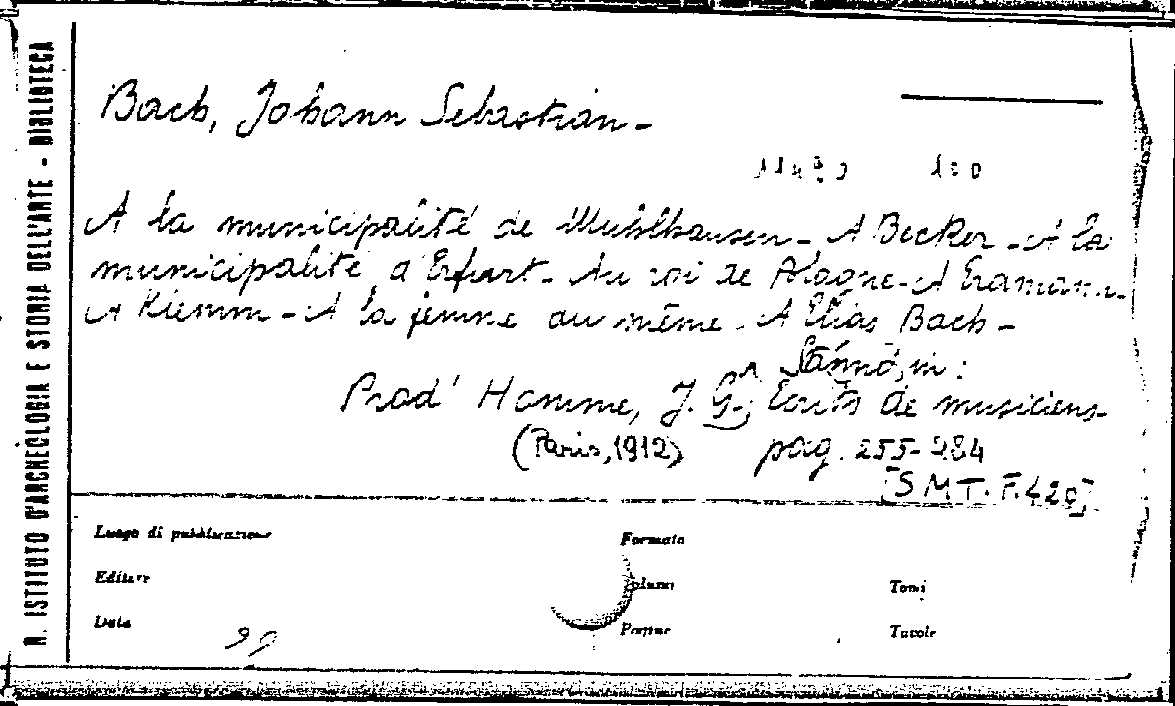 R. ISTITUTO D'ARCHEOLOGIA E STORIA DELL'ARTE - BIBLIOTECA
Bach, Johann Sebastian -
A la municipalité de Muhlhausen - A Becker - A la
municipalité d'Erfurt - Au roi de Pologne - A Eramann -
A Klemm - A la femme du même - A Elias Bach -
in:
Prod'Homme, J. G., Écrits de musiciens
(Paris, 1912) pag. 255-284
[SMT. F. 420]
Luogo di pubblicazione
Formato
Editore
Volumi
Tomi
Data
99
Pagine
Tavole